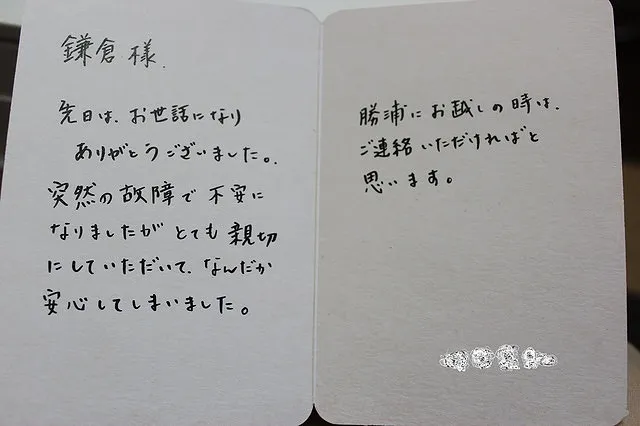 鎌倉様.
先日は、お世話になり
ありがとうございました。
突然の故障で不安に
なりましたがとても親切
にしていただいて、なんだか
安心してしまいました。
勝浦にお越しの時は、
ご連絡いただければと
思います。